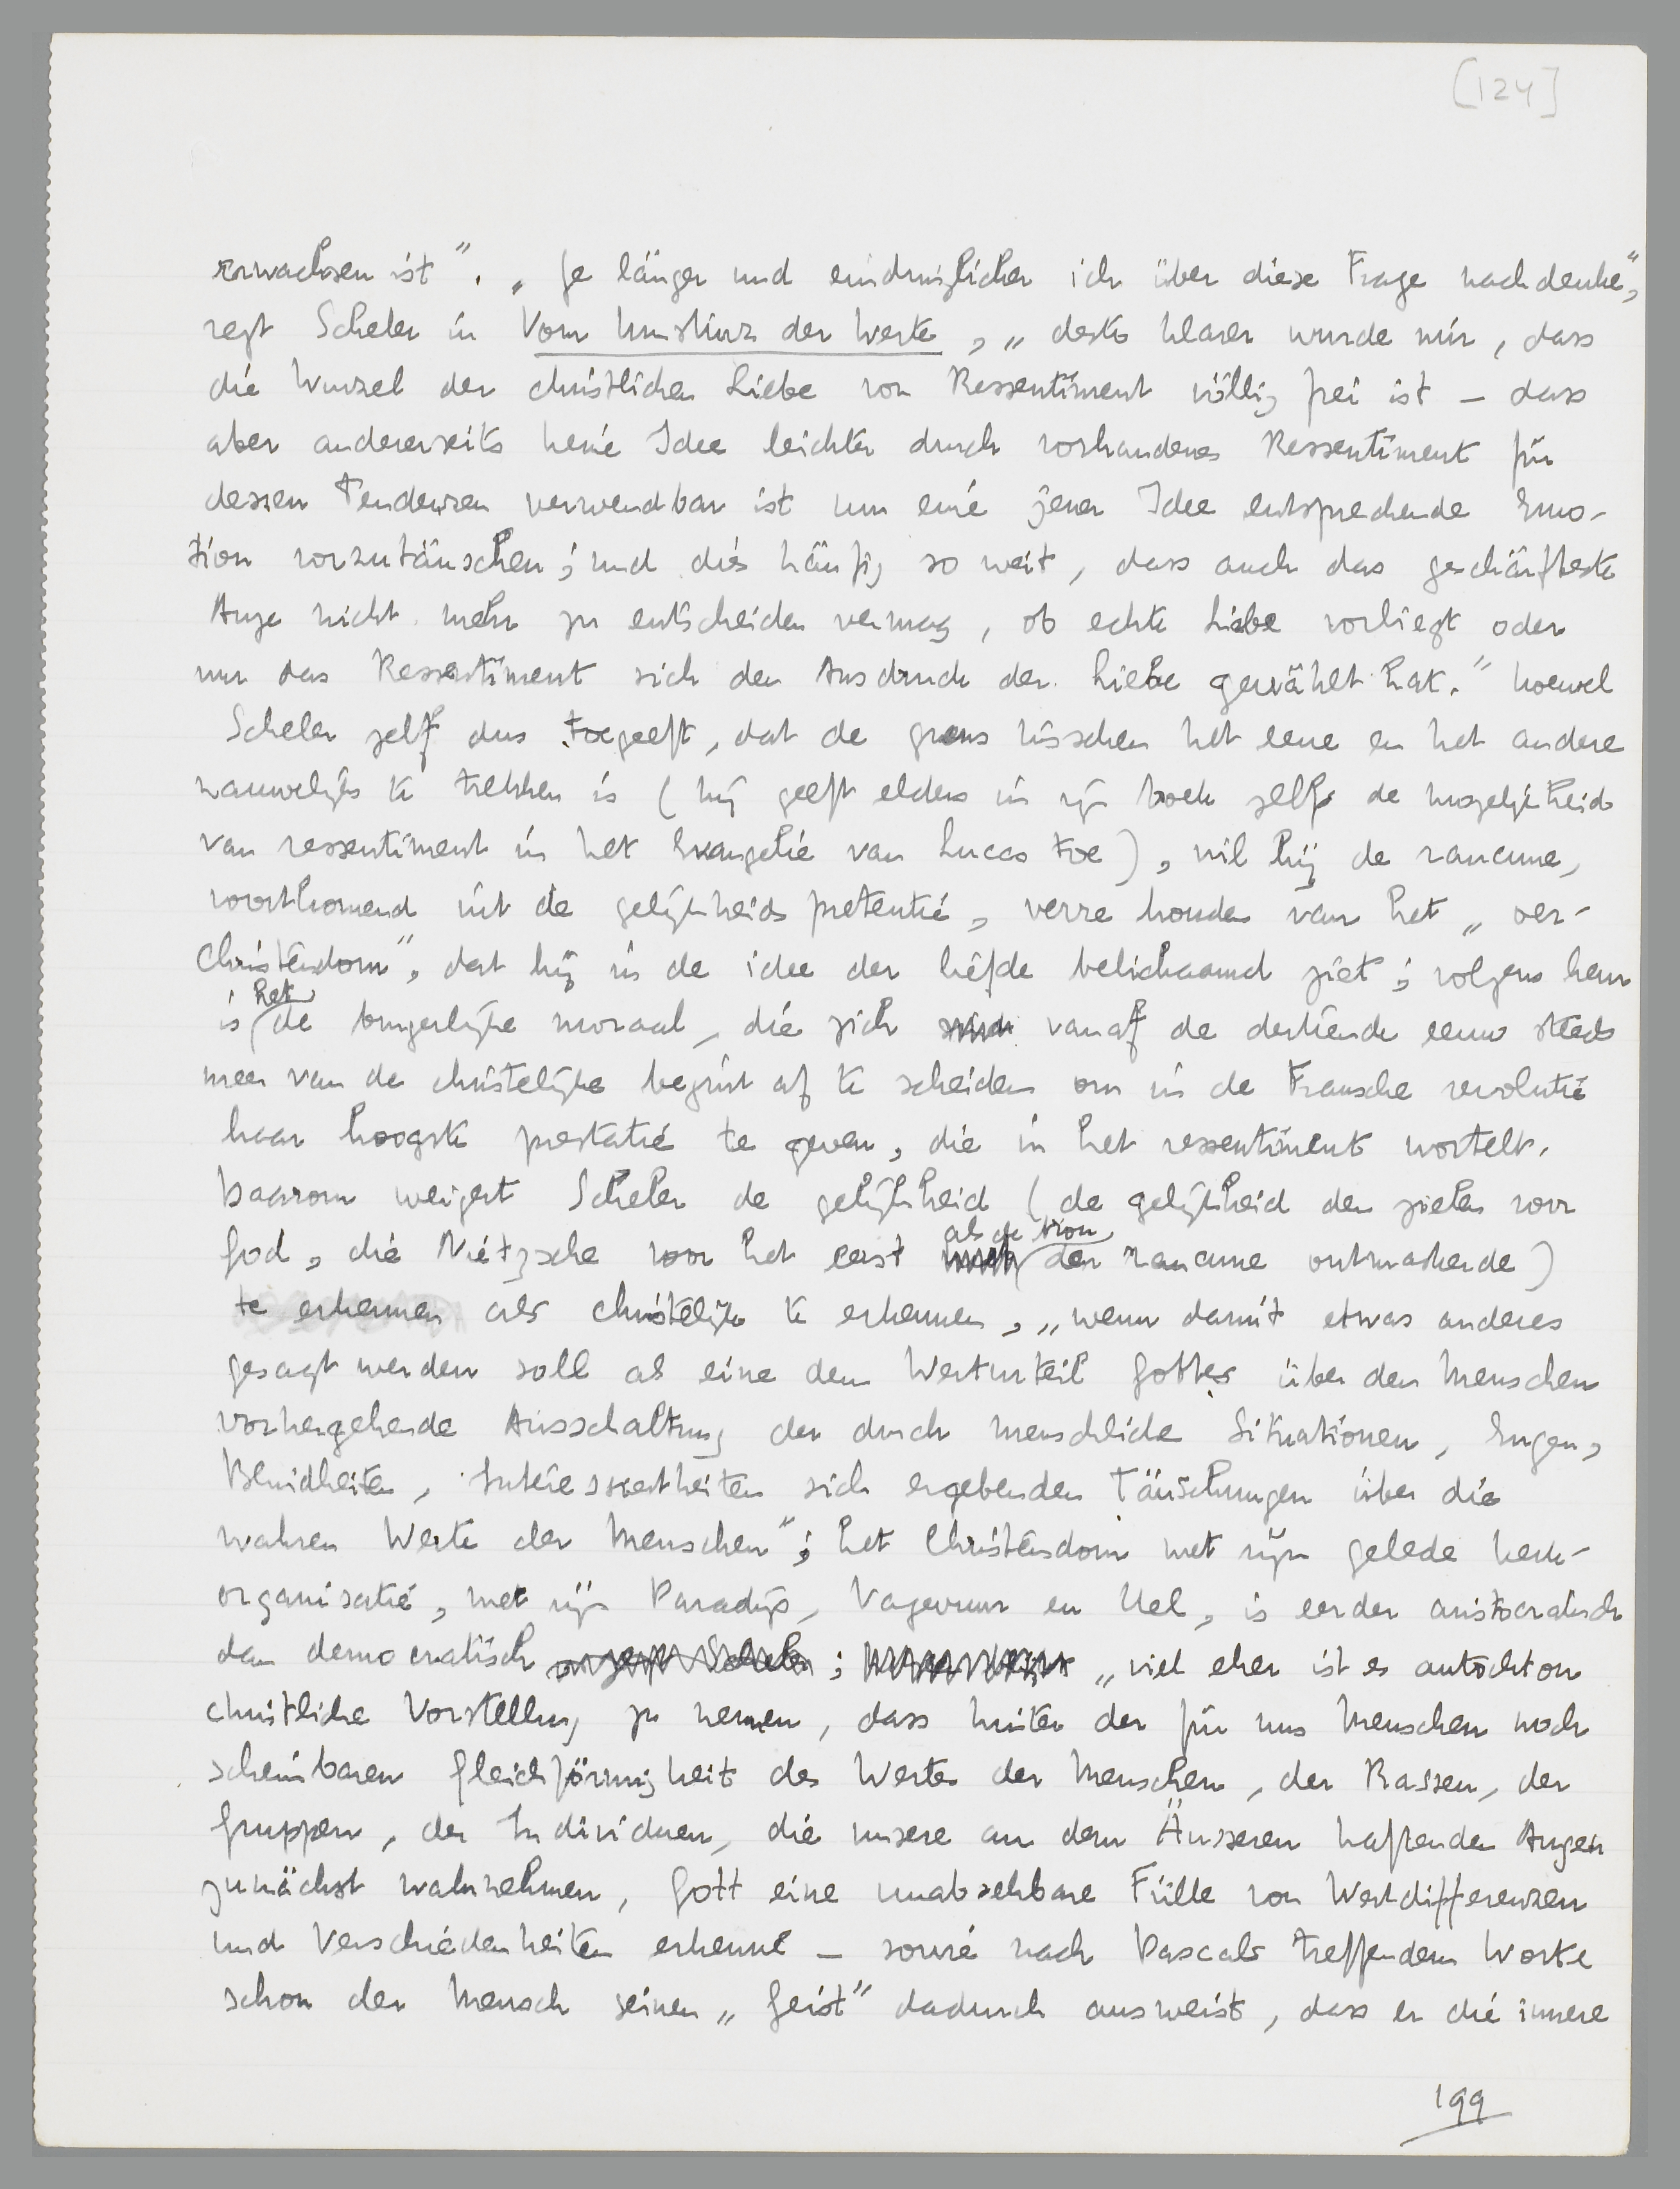 [124]
erwachsen ist”. „Je länger und eindringlicher ich über diese Frage nachdenke”,
zegt Scheler in Vom Umsturz der Werte, „desto klarer wurde mir, dass
die Wurzel der christlichen Liebe von Ressentiment völlig frei ist – dass
aber andererseits keine Idee leichter durch vorhandenes Ressentiment für
dessen Tendenzen verwendbar ist um eine jener Idee entsprechende Emo-
tion vorzutäuschen; und dies häufig so weit, dass auch das geschärfteste
Auge nicht mehr zu entscheiden vermag, ob echte Liebe vorliegt oder
nur das Ressentiment sich den Ausdruck der Liebe gewählt hat.” Hoewel
Scheler zelf dus toegeeft, dat de grens tusschen het eene en het andere
nauwelijks te trekken is (hij geeft elders in zijn boek zelfs de mogelijkheid
van ressentiment in het Evangelie van Lucas toe), wil hij de rancune,
voortkomend uit de gelijkheidspretentie, verre houden van het „oer-
Christendom”, dat hij in de idee der liefde belichaamd ziet; volgens hem
is het de burgerlijke moraal, die zich vanaf de dertiende eeuw steeds
meer van de christelijke begint af te scheiden om in de Fransche revolutie
haar hoogste prestatie te geven, die in het ressentiment wortelt.
Daarom weigert Scheler de gelijkheid (de gelijkheid der zielen voor
God, die Nietzsche voor het eerst als de bron der rancune ontmaskerde)
te erkennen als christelijk te erkennen, „wenn damit etwas anderes
gesagt werden soll als eine dem Werturteil Gottes über den Menschen
vorhergehende Ausschaltung der durch menschliche Situationen, Engen,
Blindheiten, Interessiertheiten sich ergebenden Täuschungen über die
wahren Werte der Menschen”; het Christendom met zijn gelede kerk-
organisatie, met zijn Paradijs, Vagevuur en Hel, is eerder aristocratisch
dan democratisch; „viel eher ist es autochton
christliche Vorstellung zu nennen, dass hinter der für uns Menschen noch
scheinbaren Gleichförmigkeit des Wertes der Menschen, der Rassen, der
Gruppen, der Individuen, die unsere an dem Äusseren haftenden Augen
zunächst wahrnehmen, Gott eine unabsehbare Fülle von Wertdifferenzen
und Verschiedenheiten erkenne – sowie nach Pascals treffendem Worte
schon der Mensch seinen „Geist” dadurch ausweist, dass er die innere
199